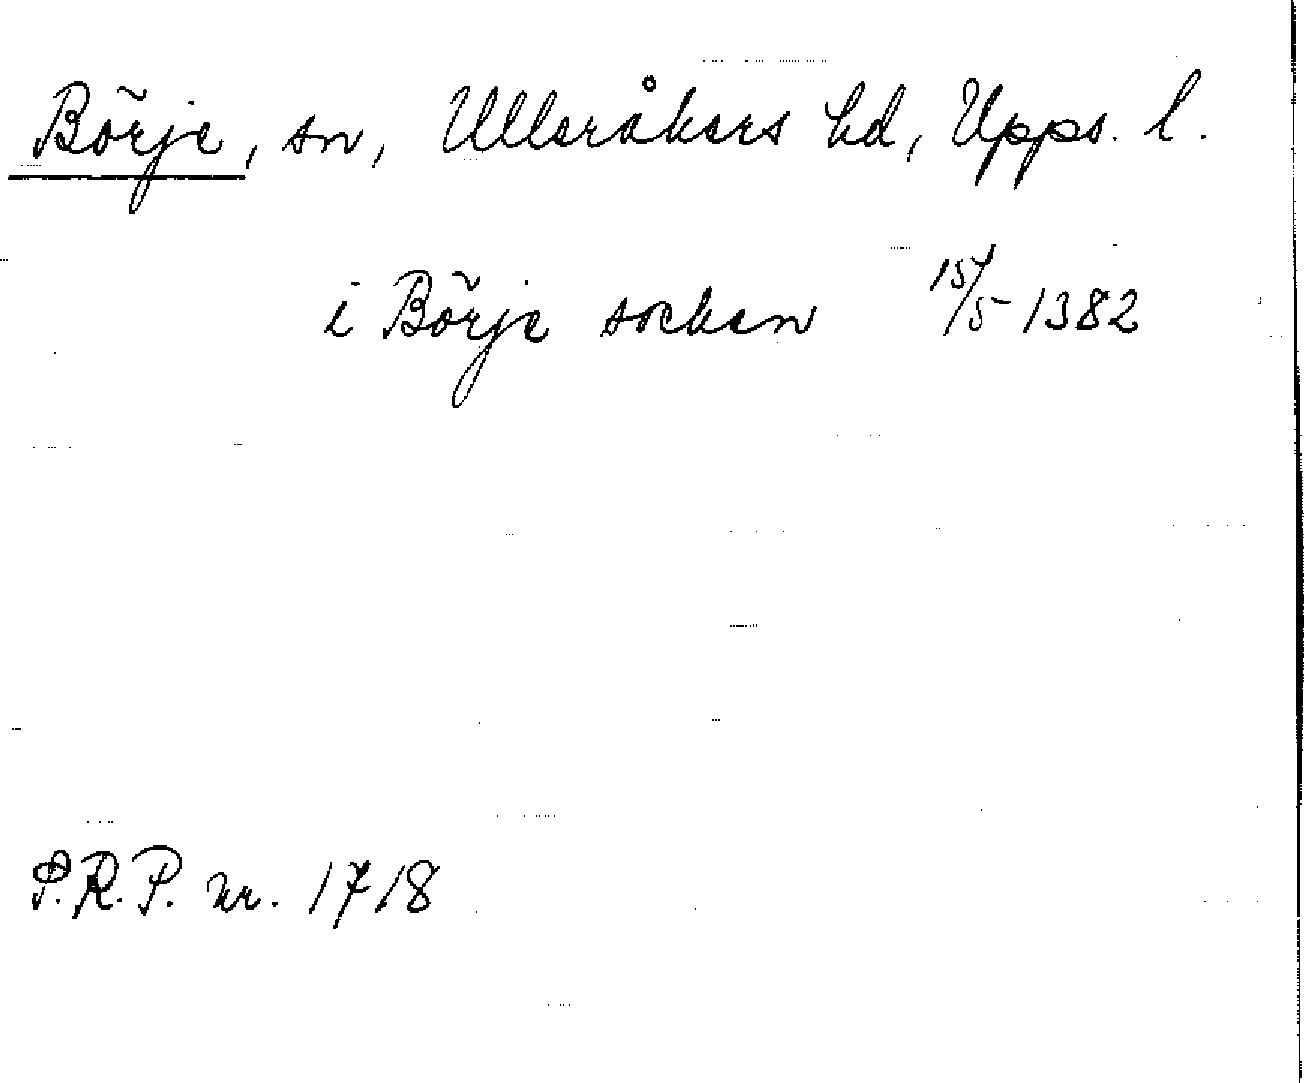 Börje, sn, Ulleråkers hd, Upps. l.
i Börje socken 15/5 1382
P.R.P. nr. 1718